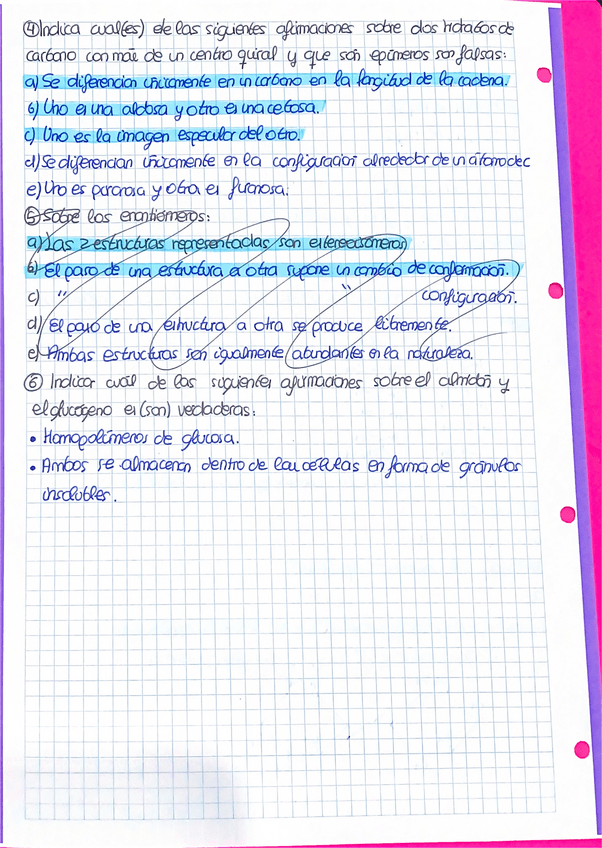 ④ Indica cual(es) de las siguientes afirmaciones sobre dos hidratos de
carbono con más de un centro quiral y que son epímeros son falsas:
a) Se diferencian únicamente en un carbono en la longitud de la cadena.
b) Uno es una aldosa y otro es una cetosa.
c) Uno es la imagen especular del otro.
d) Se diferencian únicamente en la configuración alrededor de un átomo de C
e) Uno es piranosa y otra es furanosa.
⑤ Sobre los enantiómeros:
a) Las 2 estructuras representadas son estereoisómeros
b) El paso de una estructura a otra supone un cambio de conformación.
c) " " configuración.
d) El paso de una estructura a otra se produce libremente.
e) Ambas estructuras son igualmente abundantes en la naturaleza.
⑥ Indicar cuál de las siguientes afirmaciones sobre el almidón y
el glucógeno es (son) verdaderas:
• Homopolímeros de glucosa.
• Ambos se almacenan dentro de las células en forma de gránulos
insolubles.